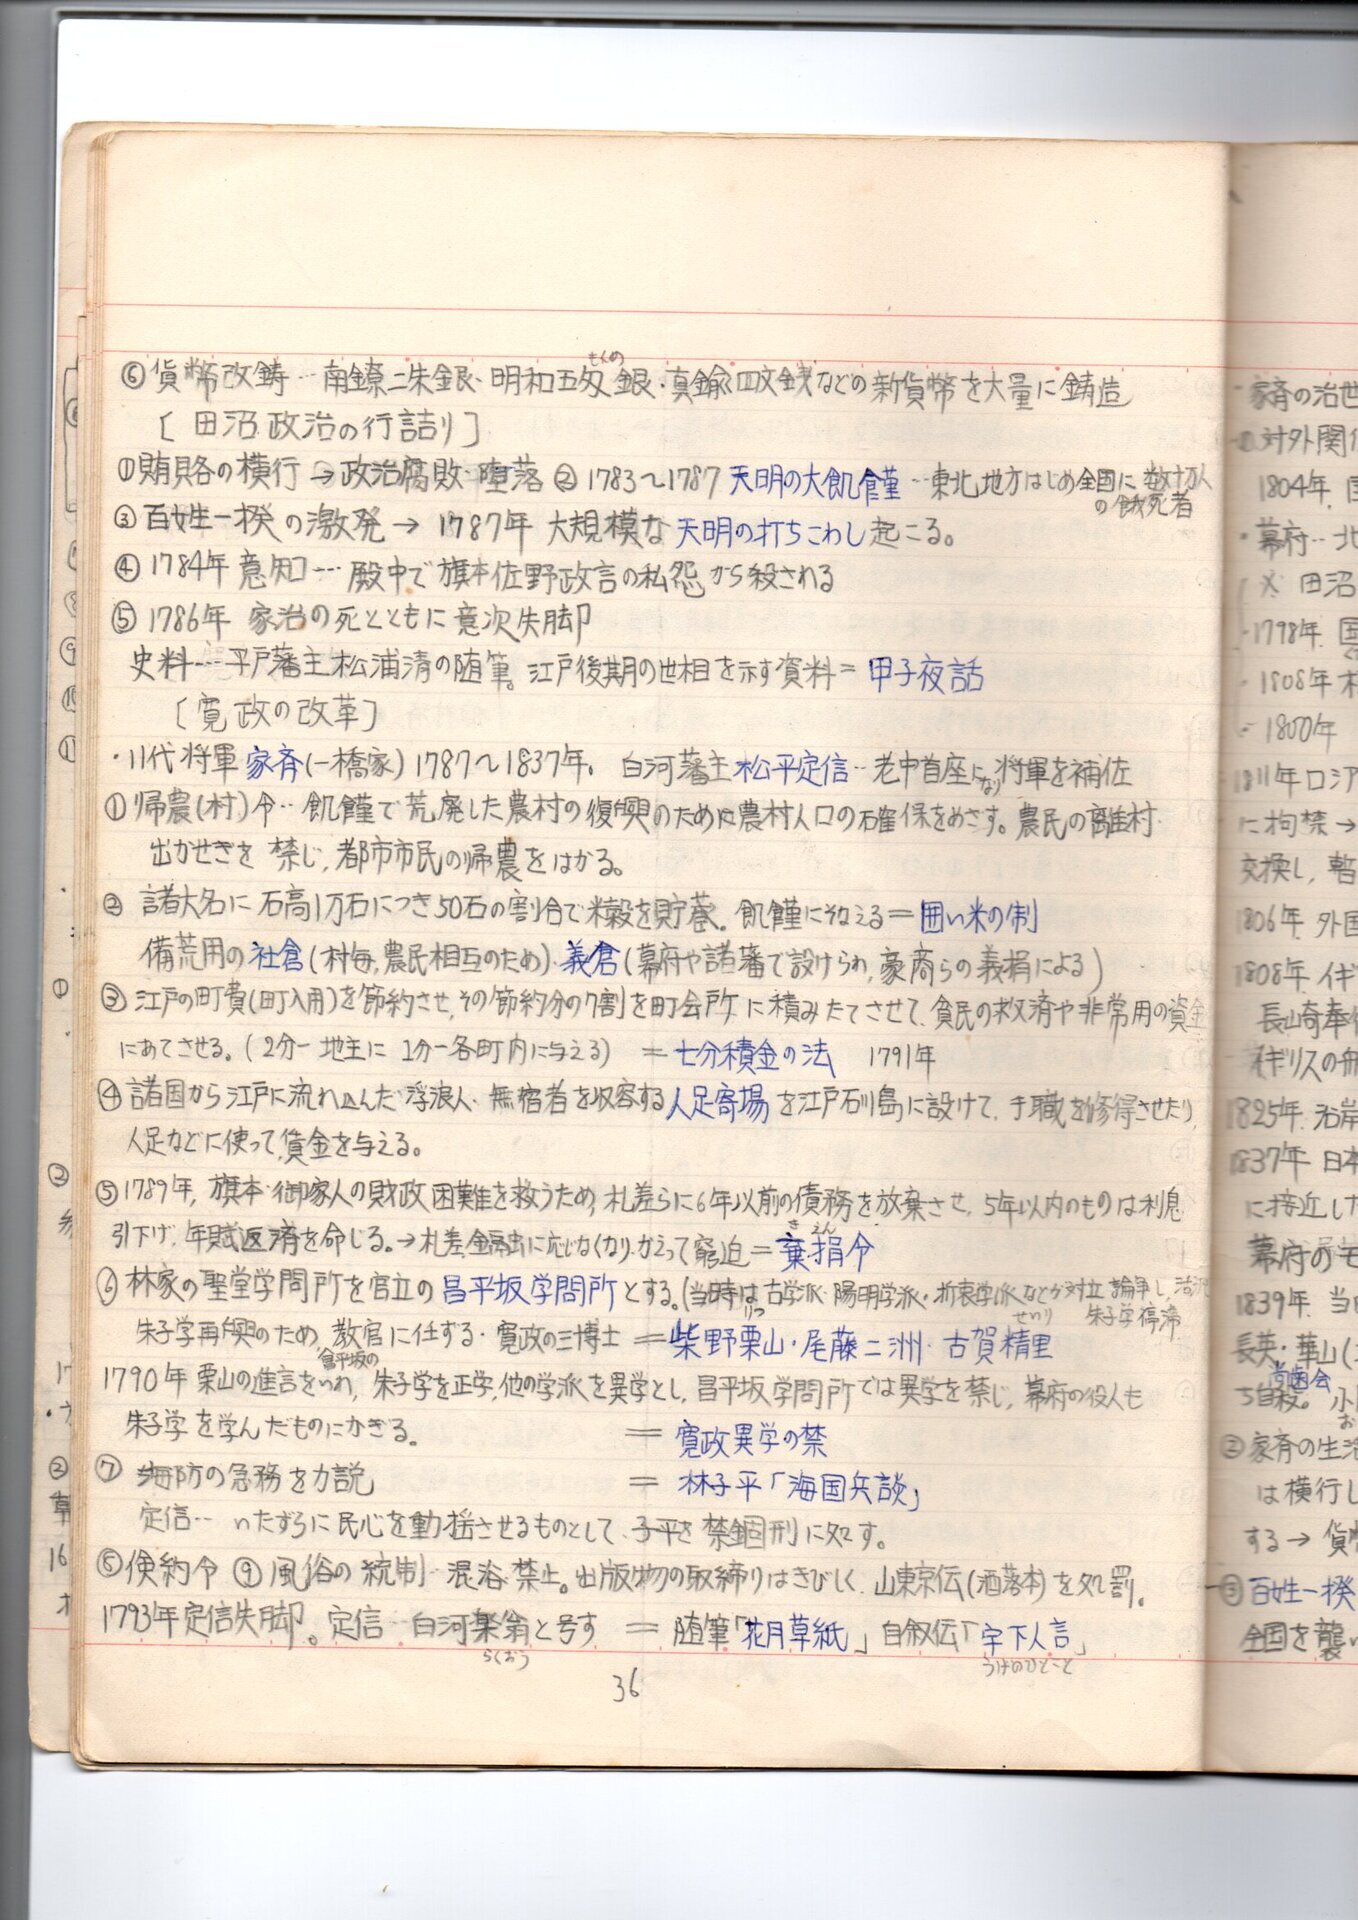 もくめ
⑥貨幣改鋳…南鐐二朱銀・明和五匁銀・真鍮四文銭などの新貨幣を大量に鋳造
[田沼政治の行詰り]
①賄賂の横行→政治腐敗・堕落 ② 1783〜1787 天明の大飢饉…東北地方はじめ全国に数十万人
の餓死者
③百姓一揆の激発→ 1787年 大規模な天明の打ちこわし起こる。
④1784年 意知…殿中で旗本佐野政言の私怨から殺される
⑤1786年 家治の死とともに意次失脚
史料…平戸藩主松浦清の随筆。江戸後期の世相を示す資料=甲子夜話
[寛政の改革]
・11代将軍家斉(一橋家)1787〜1837年。 白河藩主松平定信…老中首座になり将軍を補佐
①帰農(村)令…飢饉で荒廃した農村の復興のために農村人口の確保をめざす。農民の離村・
出かせぎを禁じ,都市市民の帰農をはかる。
② 諸大名に石高1万石につき50石の割合で米穀を貯蓄。飢饉にそなえる=囲い米の制
備荒用の社倉(村毎,農民相互のため)・義倉(幕府や諸藩で設けられ,豪商らの義捐による)
③江戸の町費(町入用)を節約させ,その節約分の7割を町会所に積みたてさせて、貧民の救済や非常用の資金
にあてさせる。(2分―地主に 1分―各町内に与える) =七分積金の法 1791年
④諸国から江戸に流れ込んだ浮浪人・無宿者を収容する人足寄場を江戸石川島に設けて、手職を修得させたり,
人足などに使って,賃金を与える。
⑤1789年,旗本・御家人の財政困難を救うため,札差らに6年以前の債務を放棄させ,5年以内のものは利息
引下げ,年賦返済を命じる。→札差,金融に応じなくなり,かえって窮迫=棄捐令
きえん
⑥林家の聖堂学問所を官立の昌平坂学問所とする。(当時は古学派・陽明学派・折衷学派などが対立,論争し,
朱子学停滞
朱子学再興のため,教官に任ずる・寛政の三博士 =柴野栗山・尾藤二洲・古賀精里
りつ せいり
1790年 栗山の進言をいれ,昌平坂の朱子学を正学,他の学派を異学とし,昌平坂学問所では異学を禁じ,幕府の役人も
朱子学を学んだものにかぎる。 =寛政異学の禁
⑦ 海防の急務を力説 =林子平「海国兵談」
定信… いたずらに民心を動揺させるものとして、子平を禁錮刑に処す。
⑧倹約令 ⑨風俗の統制…混浴禁止。出版物の取締りはきびしく、山東京伝(洒落本)を処罰。
1793年定信失脚。定信…白河楽翁と号す =随筆「花月草紙」自叙伝「宇下人言」
らくおう うげのひとこと
36
・家斉の治世
対外関
1804年
・幕府…北
田沼
・1798年
・1808年
・1800年
1811年ロシア
に拘禁→
交換し,暫
1806年.外国
1808年.イギ
長崎奉
イギリスの
1825年.沿岸
1837年.日本
に接近した
幕府のモ
1839年.当
長英・華山
尚歯会
ち自殺。小
②家斉の生活
は横行し
する→貨
③百姓一揆
全国を襲